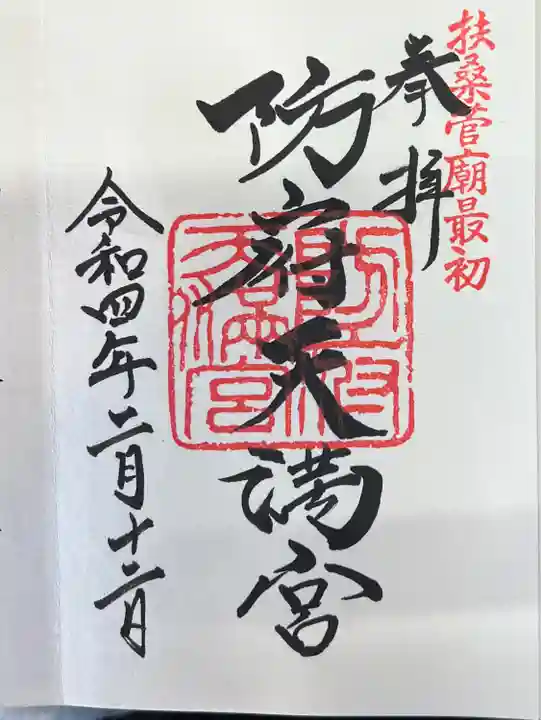 扶桑菅廟最初
奉拝
防府天満宮
防府天満宮
令和四年二月十二日